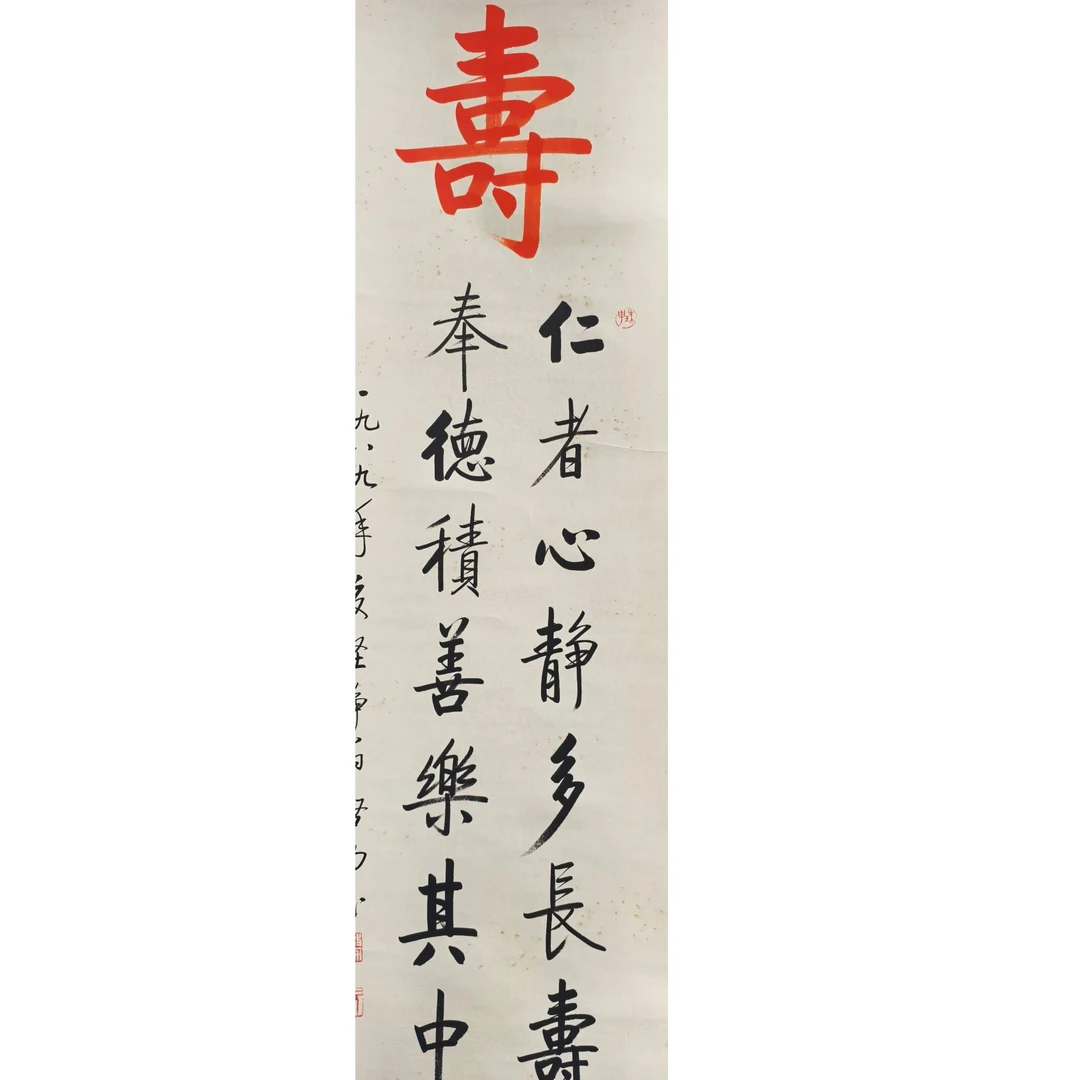 壽
仁者心静多長壽
奉德積善樂其中
一九八九年